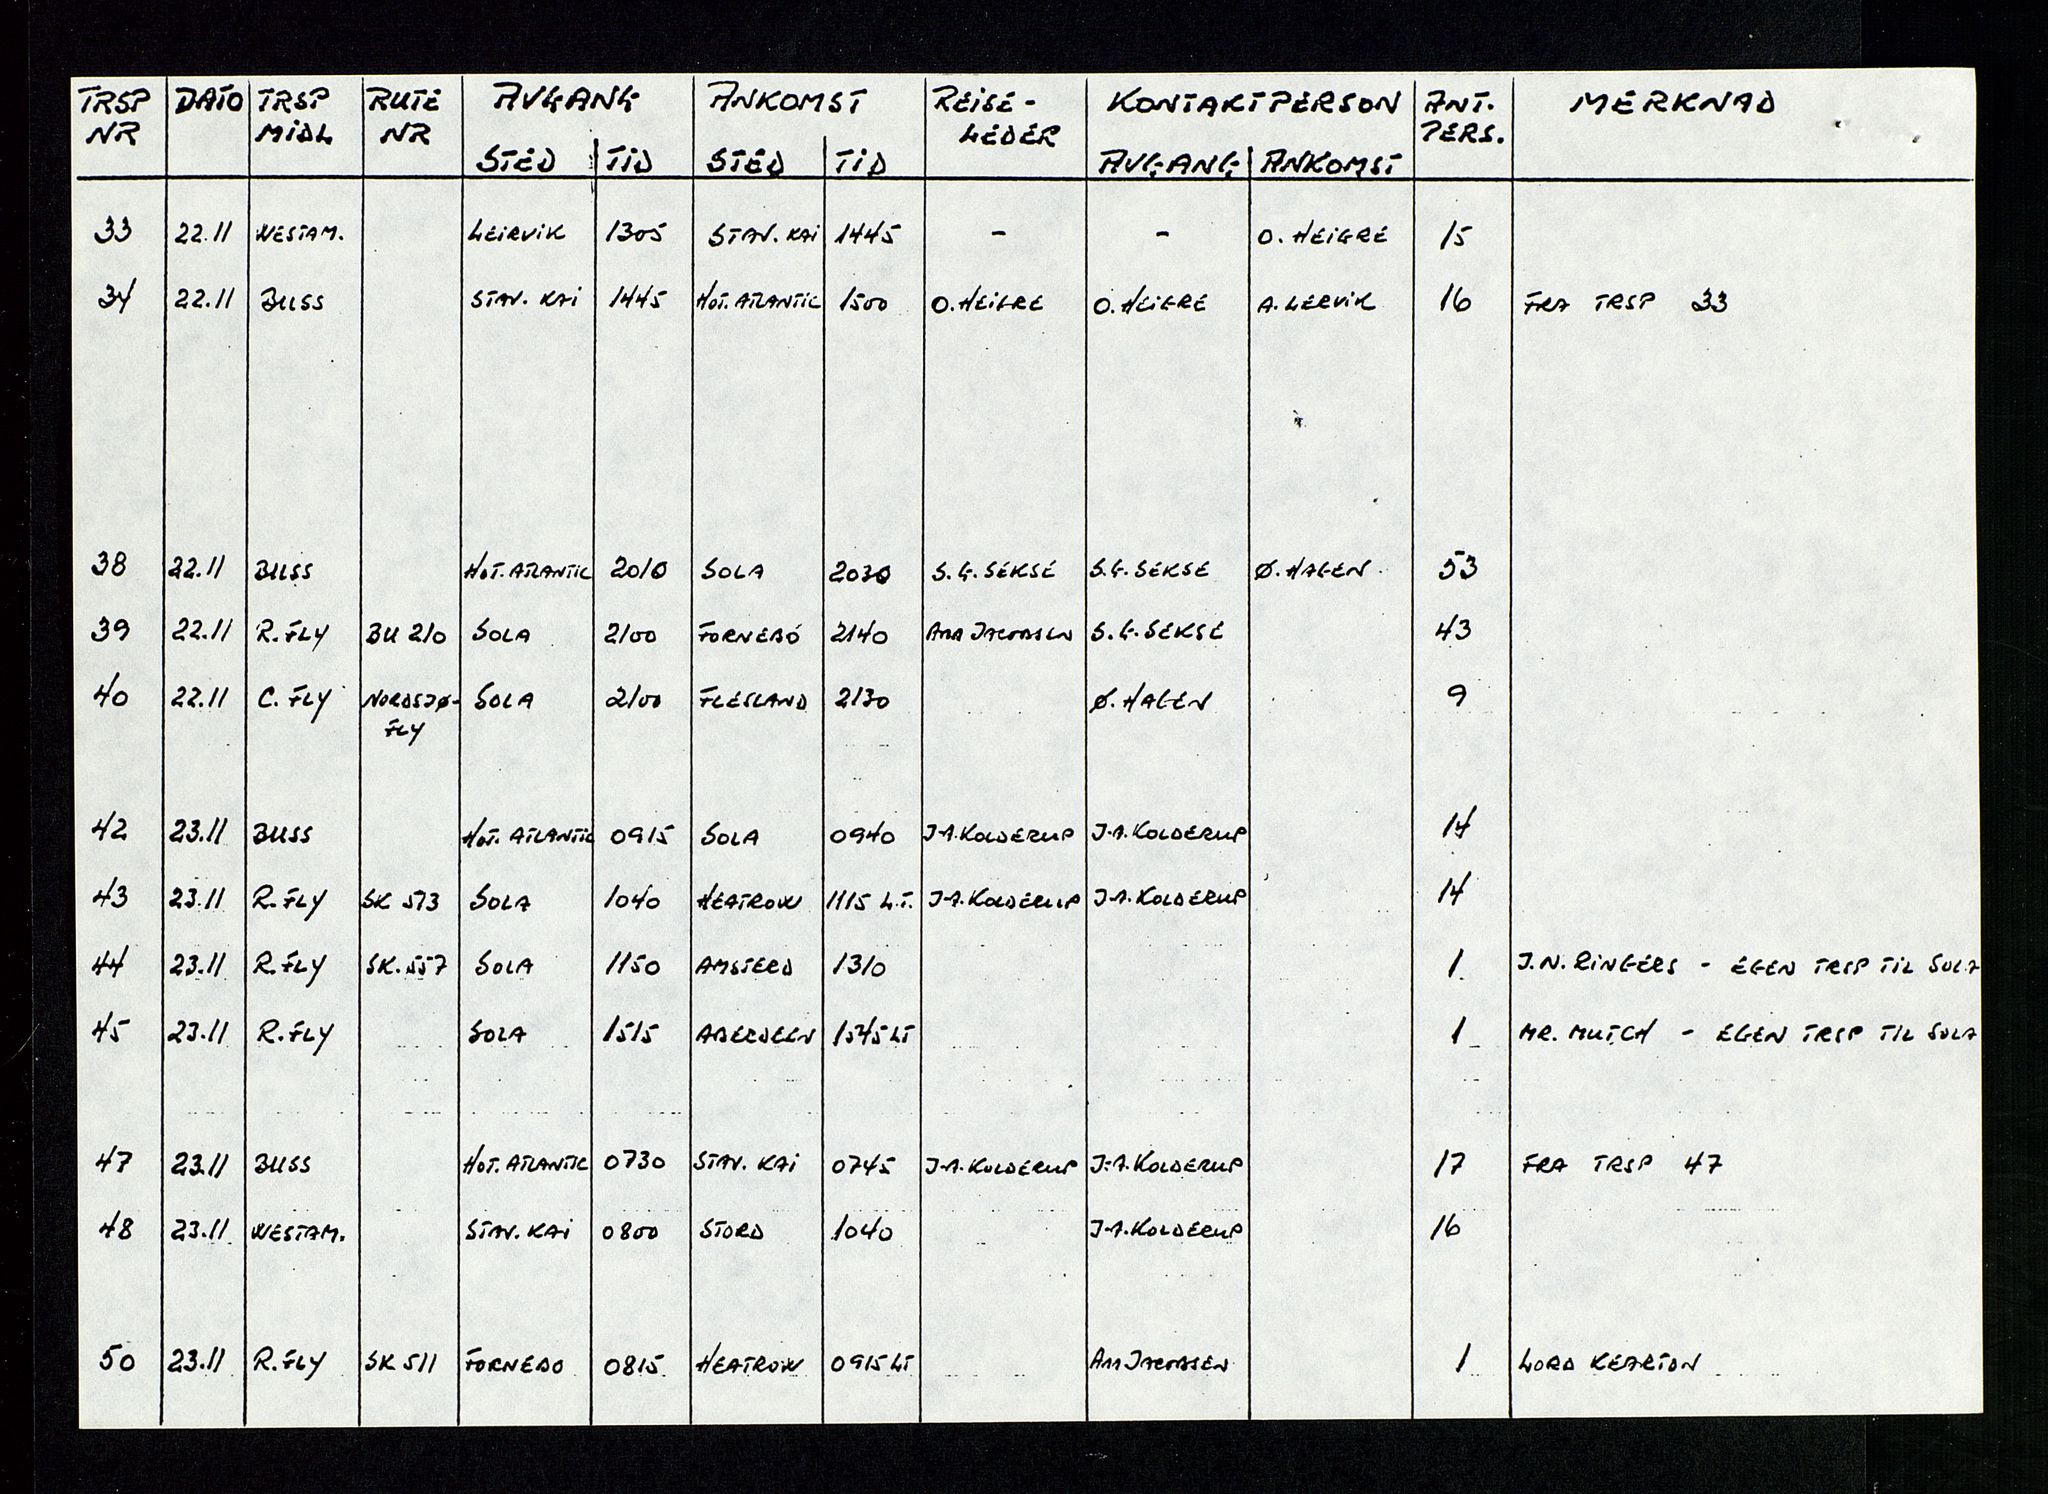 TRSP NR DATO TRSP MIDL RUTE NR AVGANG ANKOMST REISE-LEDER KONTAKTPERSON ANT. PERS. MERKNAD
STED TID STED TID AVGANG ANKOMST
33 22.11 WESTAM. LEIRVIK 1305 STAV. KAI 1445 - - O. HEIGRE 15
34 22.11 BUSS STAV. KAI 1445 HOT. ATLANTIC 1500 O. HEIGRE O. HEIGRE A. LERVIK 16 FRA TRSP 33
38 22.11 BUSS HOT. ATLANTIC 2010 SOLA 2030 S.G. SEKSE S.G. SEKSE Ø. HAGEN 53
39 22.11 R. FLY BU 210 SOLA 2100 FORNEBO 2140 JACOBSEN S.G. SEKSE 43
40 22.11 C. FLY NORDSJØ- SOLA 2100 FLESLAND 2130 Ø. HAGEN 9
FLY
42 23.11 BUSS HOT. ATLANTIC 0915 SOLA 0940 J-A. KOLDERUP J-A. KOLDERUP 14
43 23.11 R. FLY SK 513 SOLA 1040 HEATROW 1115 L.T. J-A. KOLDERUP J-A. KOLDERUP 14
44 23.11 R. FLY SK. 557 SOLA 1150 AMSTERD 1310 1 J.N. RINGERS - EGEN TRSP TIL SOLA
45 23.11 R. FLY SOLA 1515 ABERDEEN 1545 LT 1 MR. MUTCH - EGEN TRSP TIL SOLA
47 23.11 BUSS HOT. ATLANTIC 0730 STAV. KAI 0745 J-A. KOLDERUP J-A. KOLDERUP 17 FRA TRSP 47
48 23.11 WESTAM. STAV. KAI 0800 STORD 1040 J-A. KOLDERUP 16
50 23.11 R. FLY SK 511 FORNEBO 0815 HEATROW 0915 LT JACOBSEN 1 LORD KEARTON